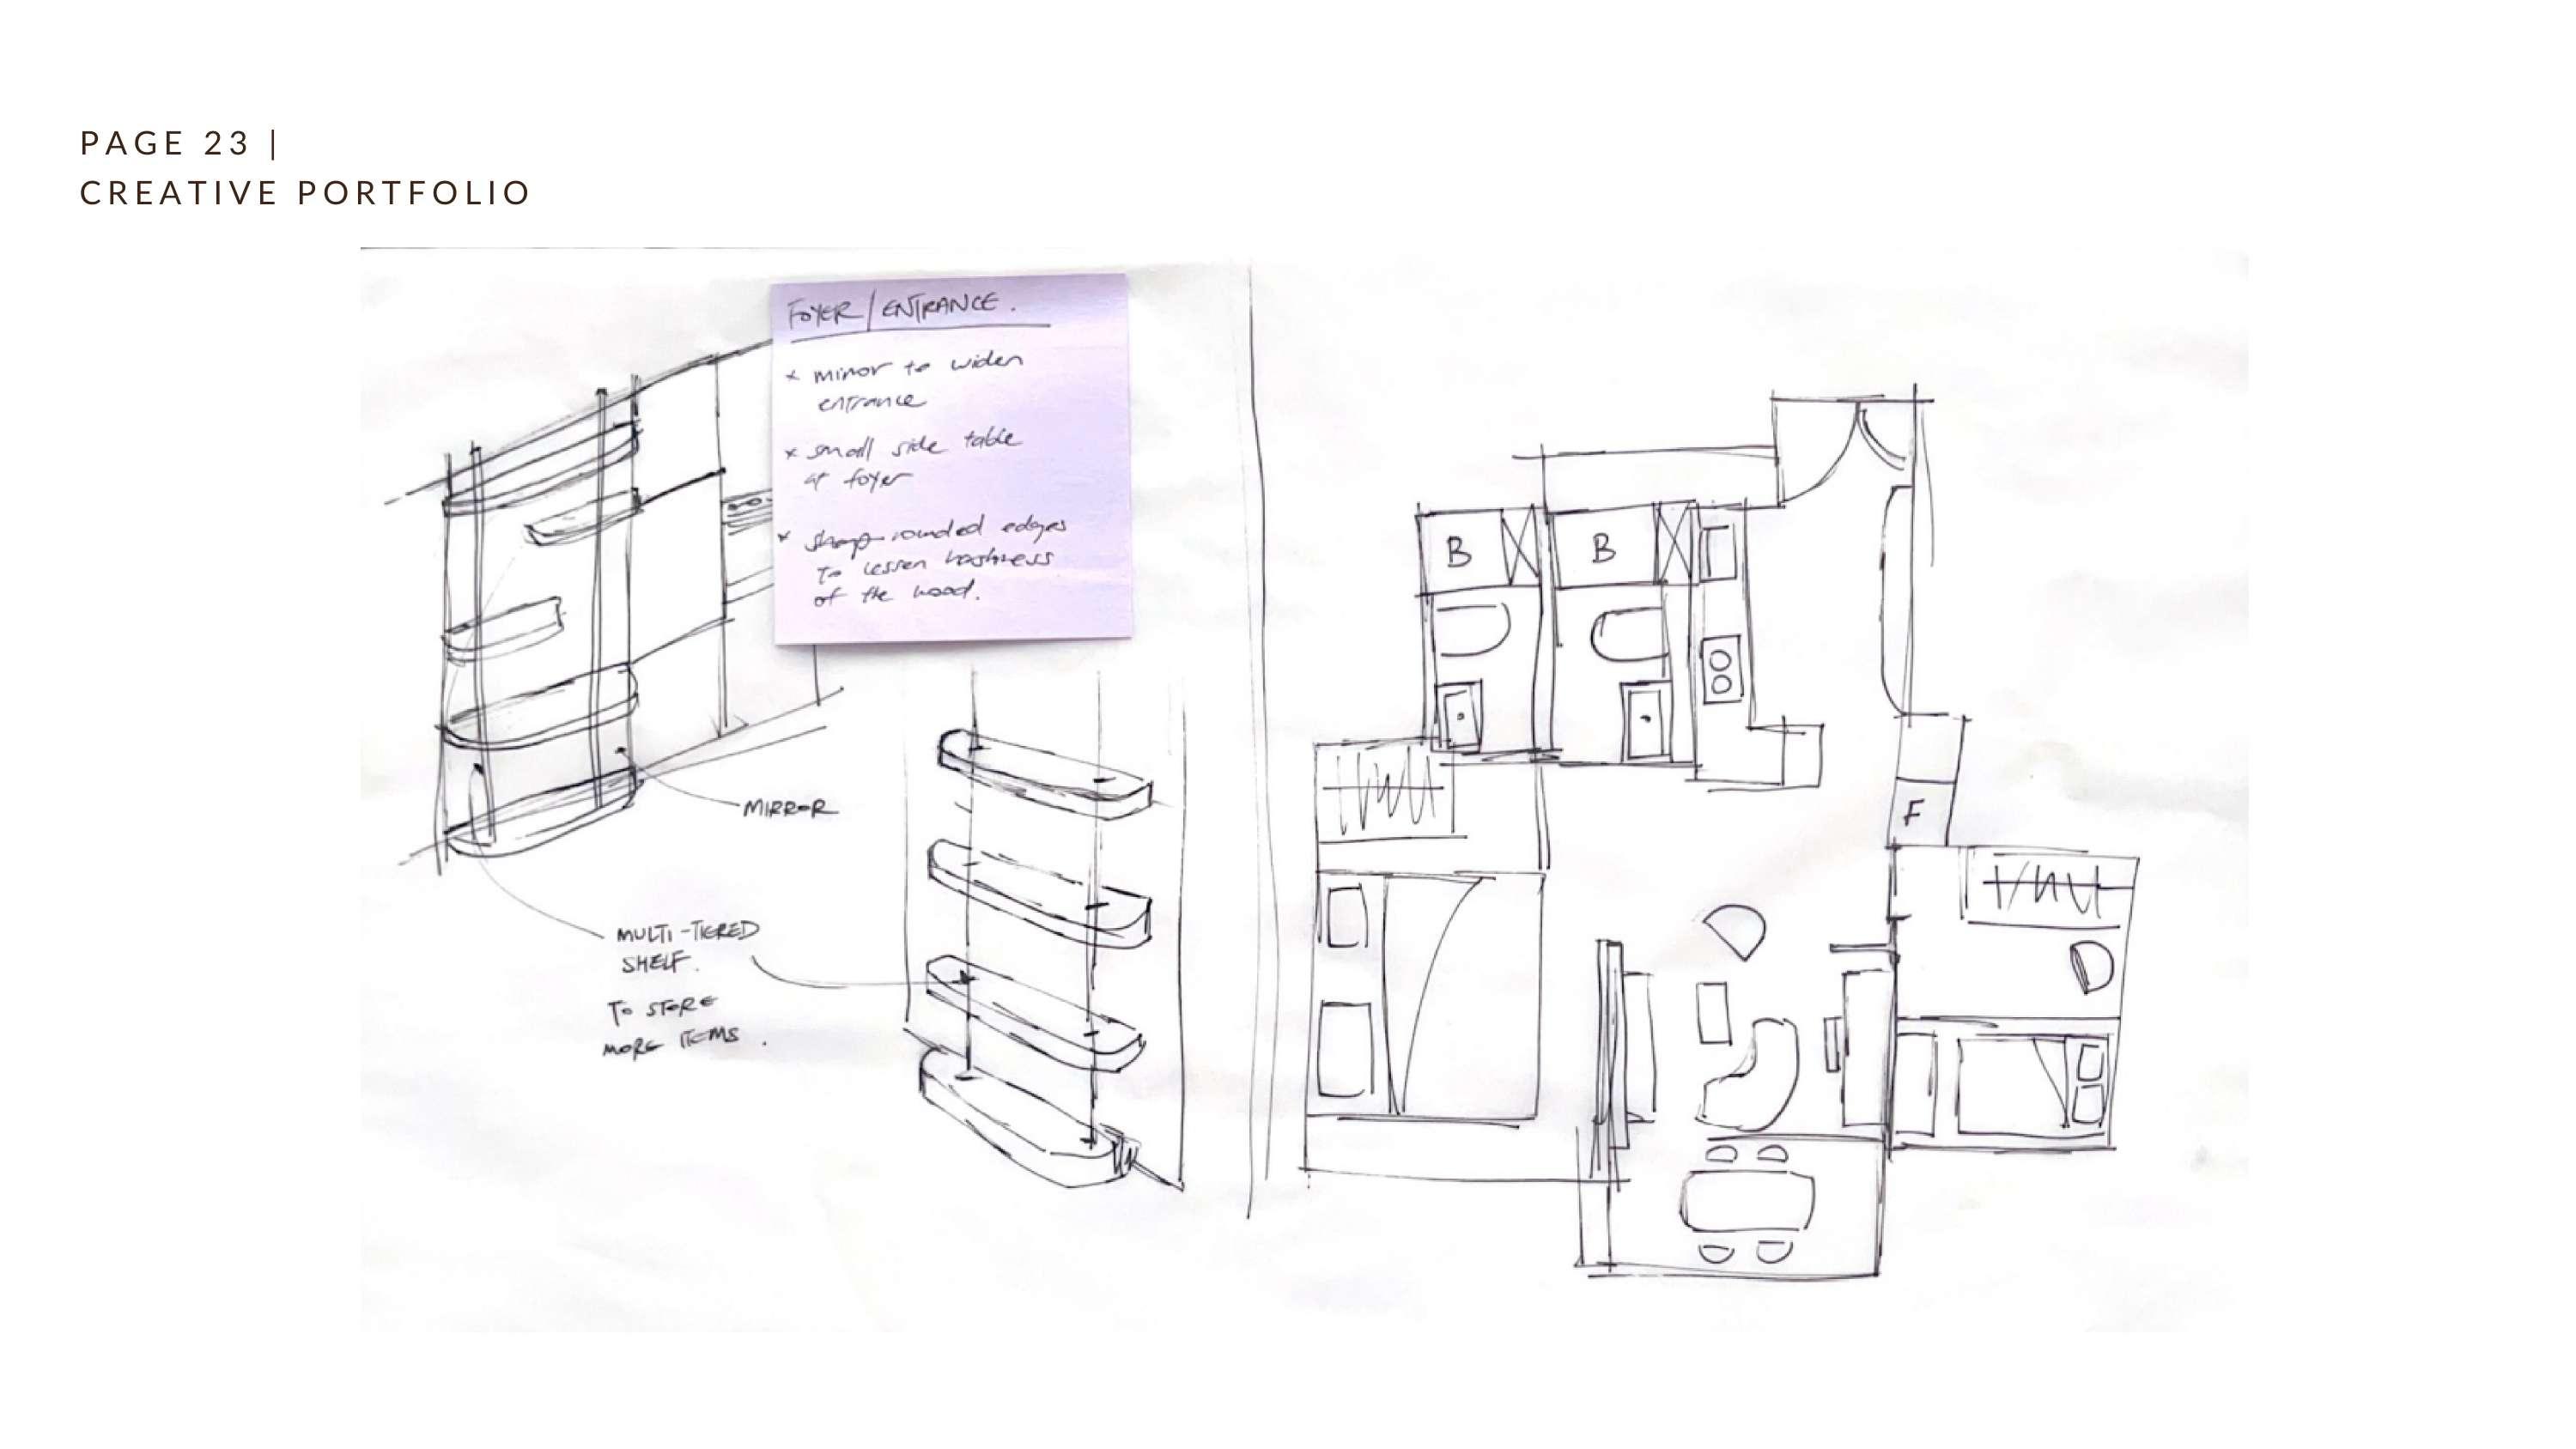 PAGE 23 |
CREATIVE PORTFOLIO
FOYER / ENTRANCE.
* mirror to widen
entrance
* small side table
at foyer
* sharp rounded edges
to lessen harshness
of the wood.
MIRROR
MULTI-TIERED
SHELF.
TO STORE
MORE ITEMS.
B
B
F